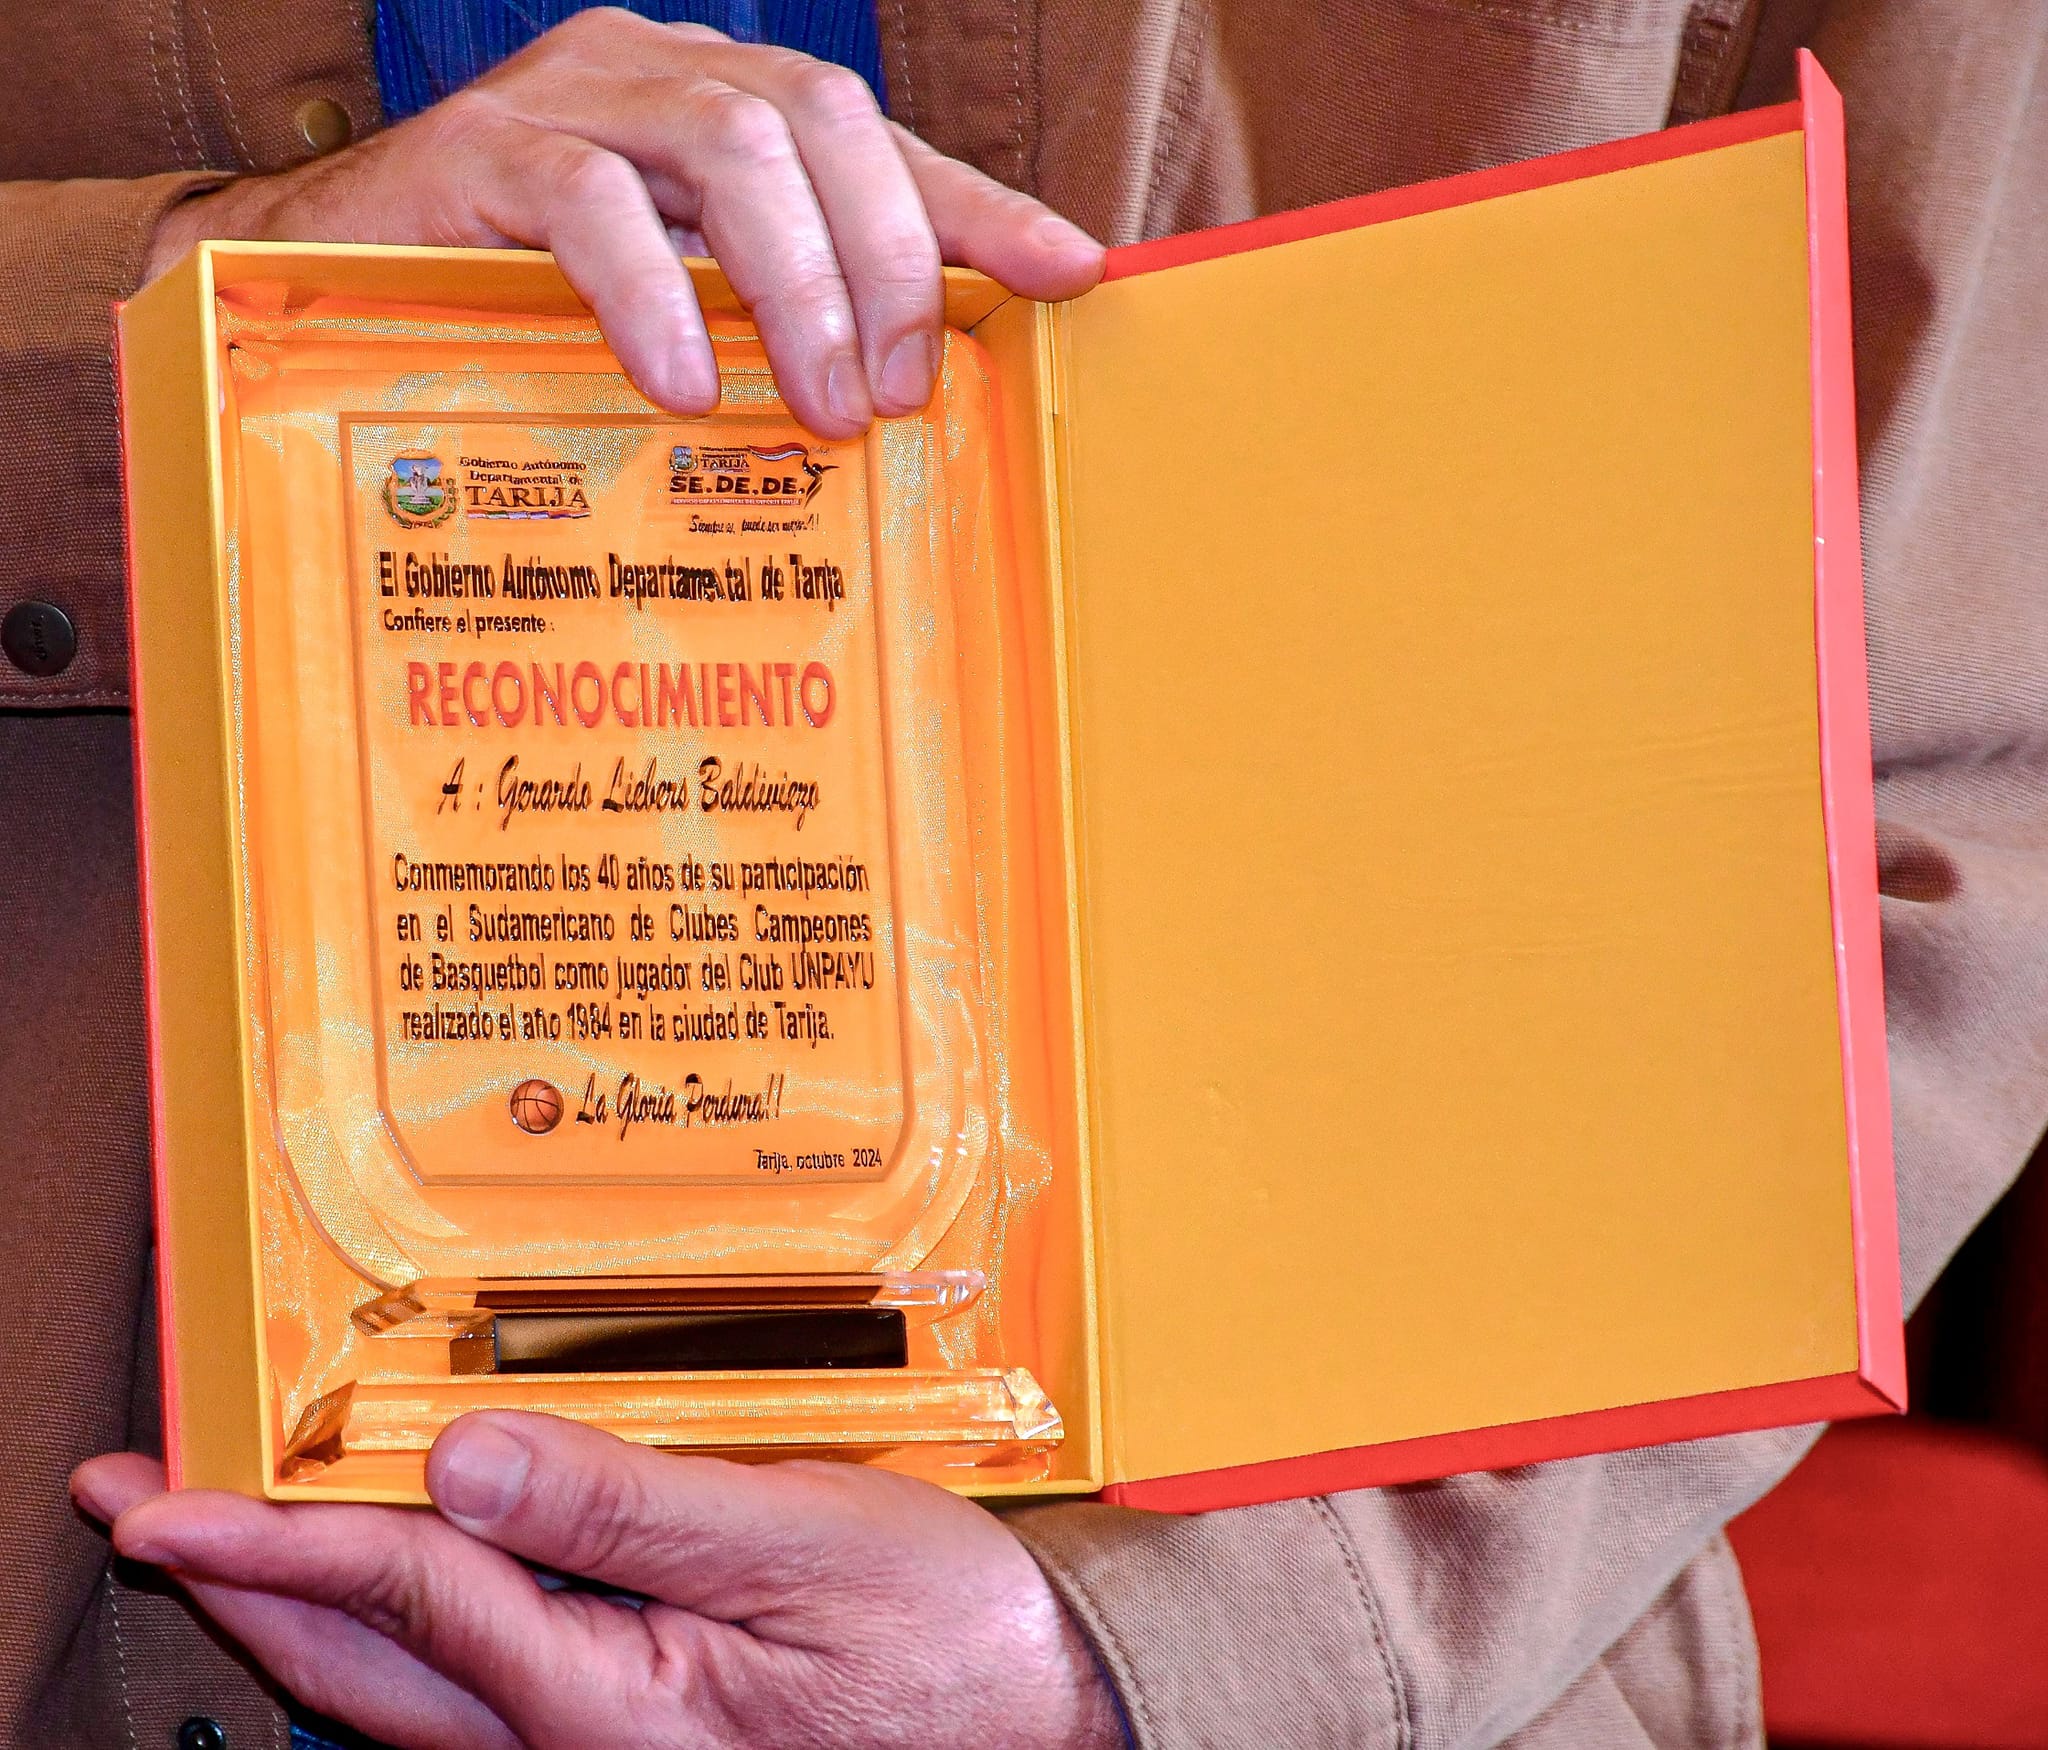 Gobierno Autónomo
Departamental de
TARIJA
TARIJA
SE.DE.DE.
El Gobierno Autónomo Departamental de Tarija
Confiere el presente :
RECONOCIMIENTO
A : Gerardo Liebers Baldiviezo
Conmemorando los 40 años de su participación
en el Sudamericano de Clubes Campeones
de Basquetbol como jugador del Club UNPAYU
realizado el año 1984 en la ciudad de Tarija.
La Gloria Perdura!!
Tarija, octubre 2024